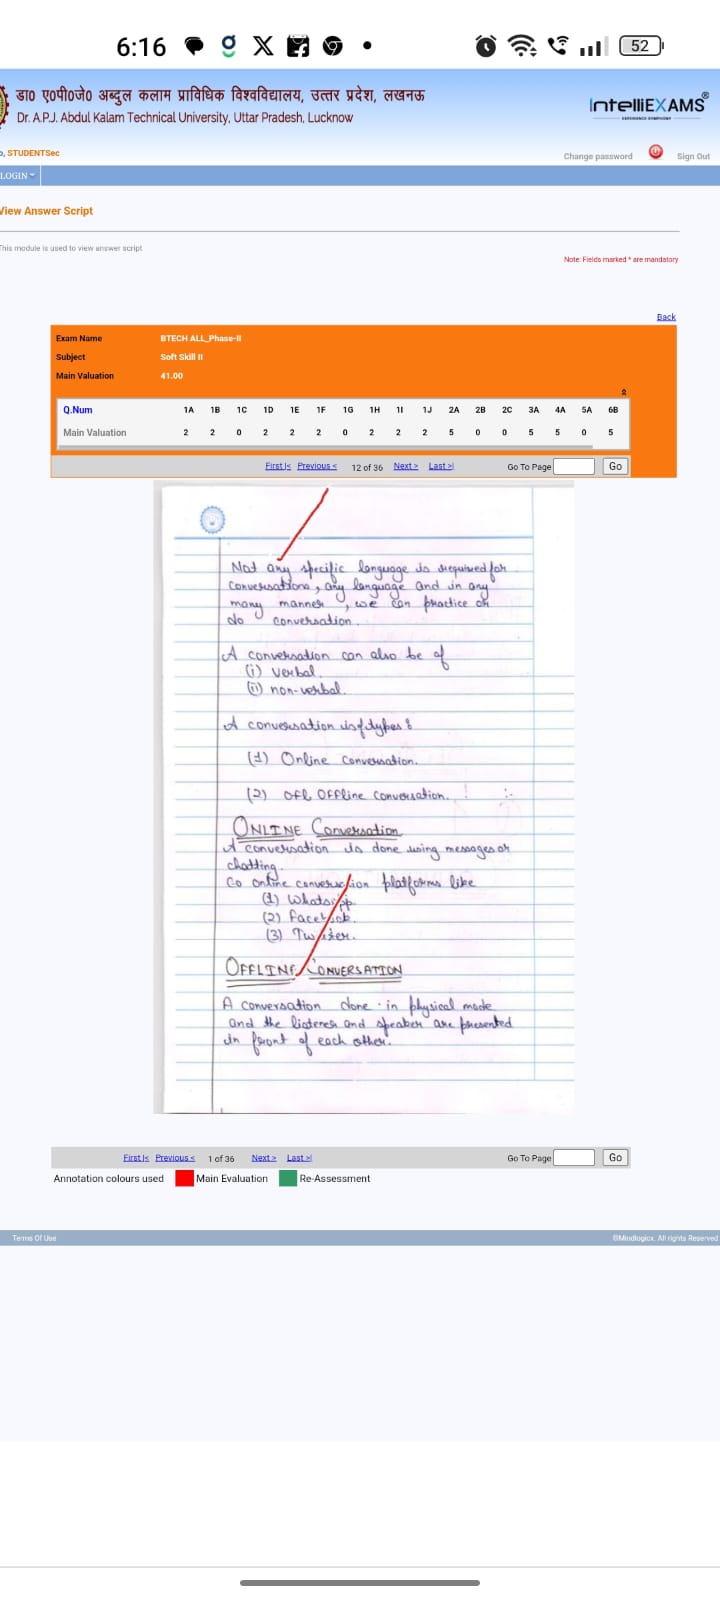 6:16
52
डा० ए०पी०जे० अब्दुल कलाम प्राविधिक विश्वविद्यालय, उत्तर प्रदेश, लखनऊ
Dr. A.P.J. Abdul Kalam Technical University, Uttar Pradesh, Lucknow
IntelliEXAMS
o, STUDENTSec
Change password Sign Out
LOGIN
View Answer Script
This module is used to view answer script
Note: Fields marked * are mandatory
Back
Exam Name BTECH ALL_Phase-II
Subject Soft Skill II
Main Valuation 41.00
Q.Num 1A 1B 1C 1D 1E 1F 1G 1H 1I 1J 2A 2B 2C 3A 4A 5A 6B
Main Valuation 2 2 0 2 2 2 0 2 2 2 5 0 0 5 5 0 5
First|< Previous < 12 of 36 Next > Last >| Go To Page Go
Not any specific language is required for
conversations, any language and in any
many manner, we can practice or
do conversation.
A conversation can also be of
(i) verbal.
(ii) non-verbal.
A conversation is of types :
(1) Online Conversation.
(2) Offline Conversation.
ONLINE Conversation
A conversation is done using messages or
chatting.
Co online conversation platforms like
(1) Whatsapp.
(2) Facebook.
(3) Twitter.
OFFLINE CONVERSATION
A conversation done in physical mode
and the listener and speaker are presented
in front of each other.
First|< Previous < 1 of 36 Next > Last >| Go To Page Go
Annotation colours used Main Evaluation Re-Assessment
Terms Of Use ©Mindlogicx. All rights Reserved